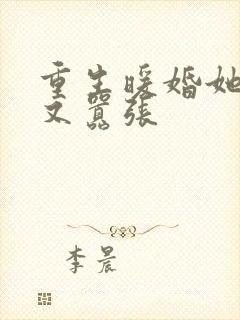 重生暖婚她
又囂張
李晨